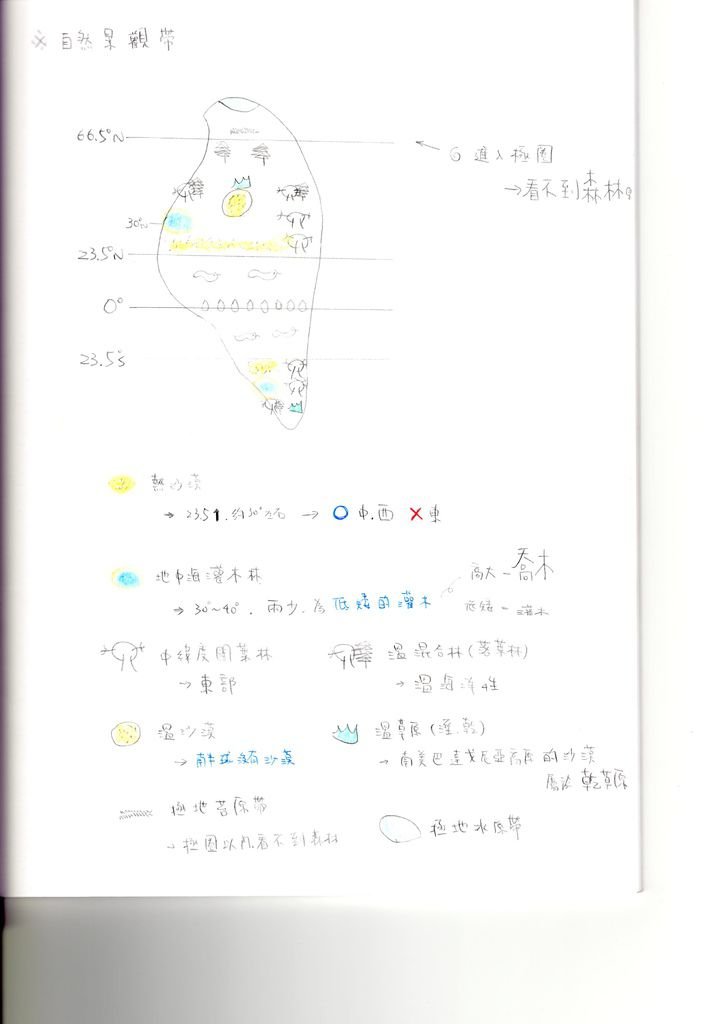 ※ 自然景觀帶
66.5°N
6 進入極圈
→看不到森林。
30°N
23.5°N
0°
23.5°S
熱沙漠
→ 23.5↑.約30°左右 → O 中.西 X 東
地中海灌木林
→ 30°~40°. 雨少.為低矮的灌木
高大－喬木
低矮－灌木
中緯度闊葉林
→ 東部
溫混合林(落葉林)
→ 溫海洋性
溫沙漠
→ 南半球沒有沙漠
溫草原(溼.乾)
→ 南美巴塔哥尼亞高原的沙漠
屬於乾草原
極地苔原帶
→ 極圈以內看不到森林
極地冰原帶